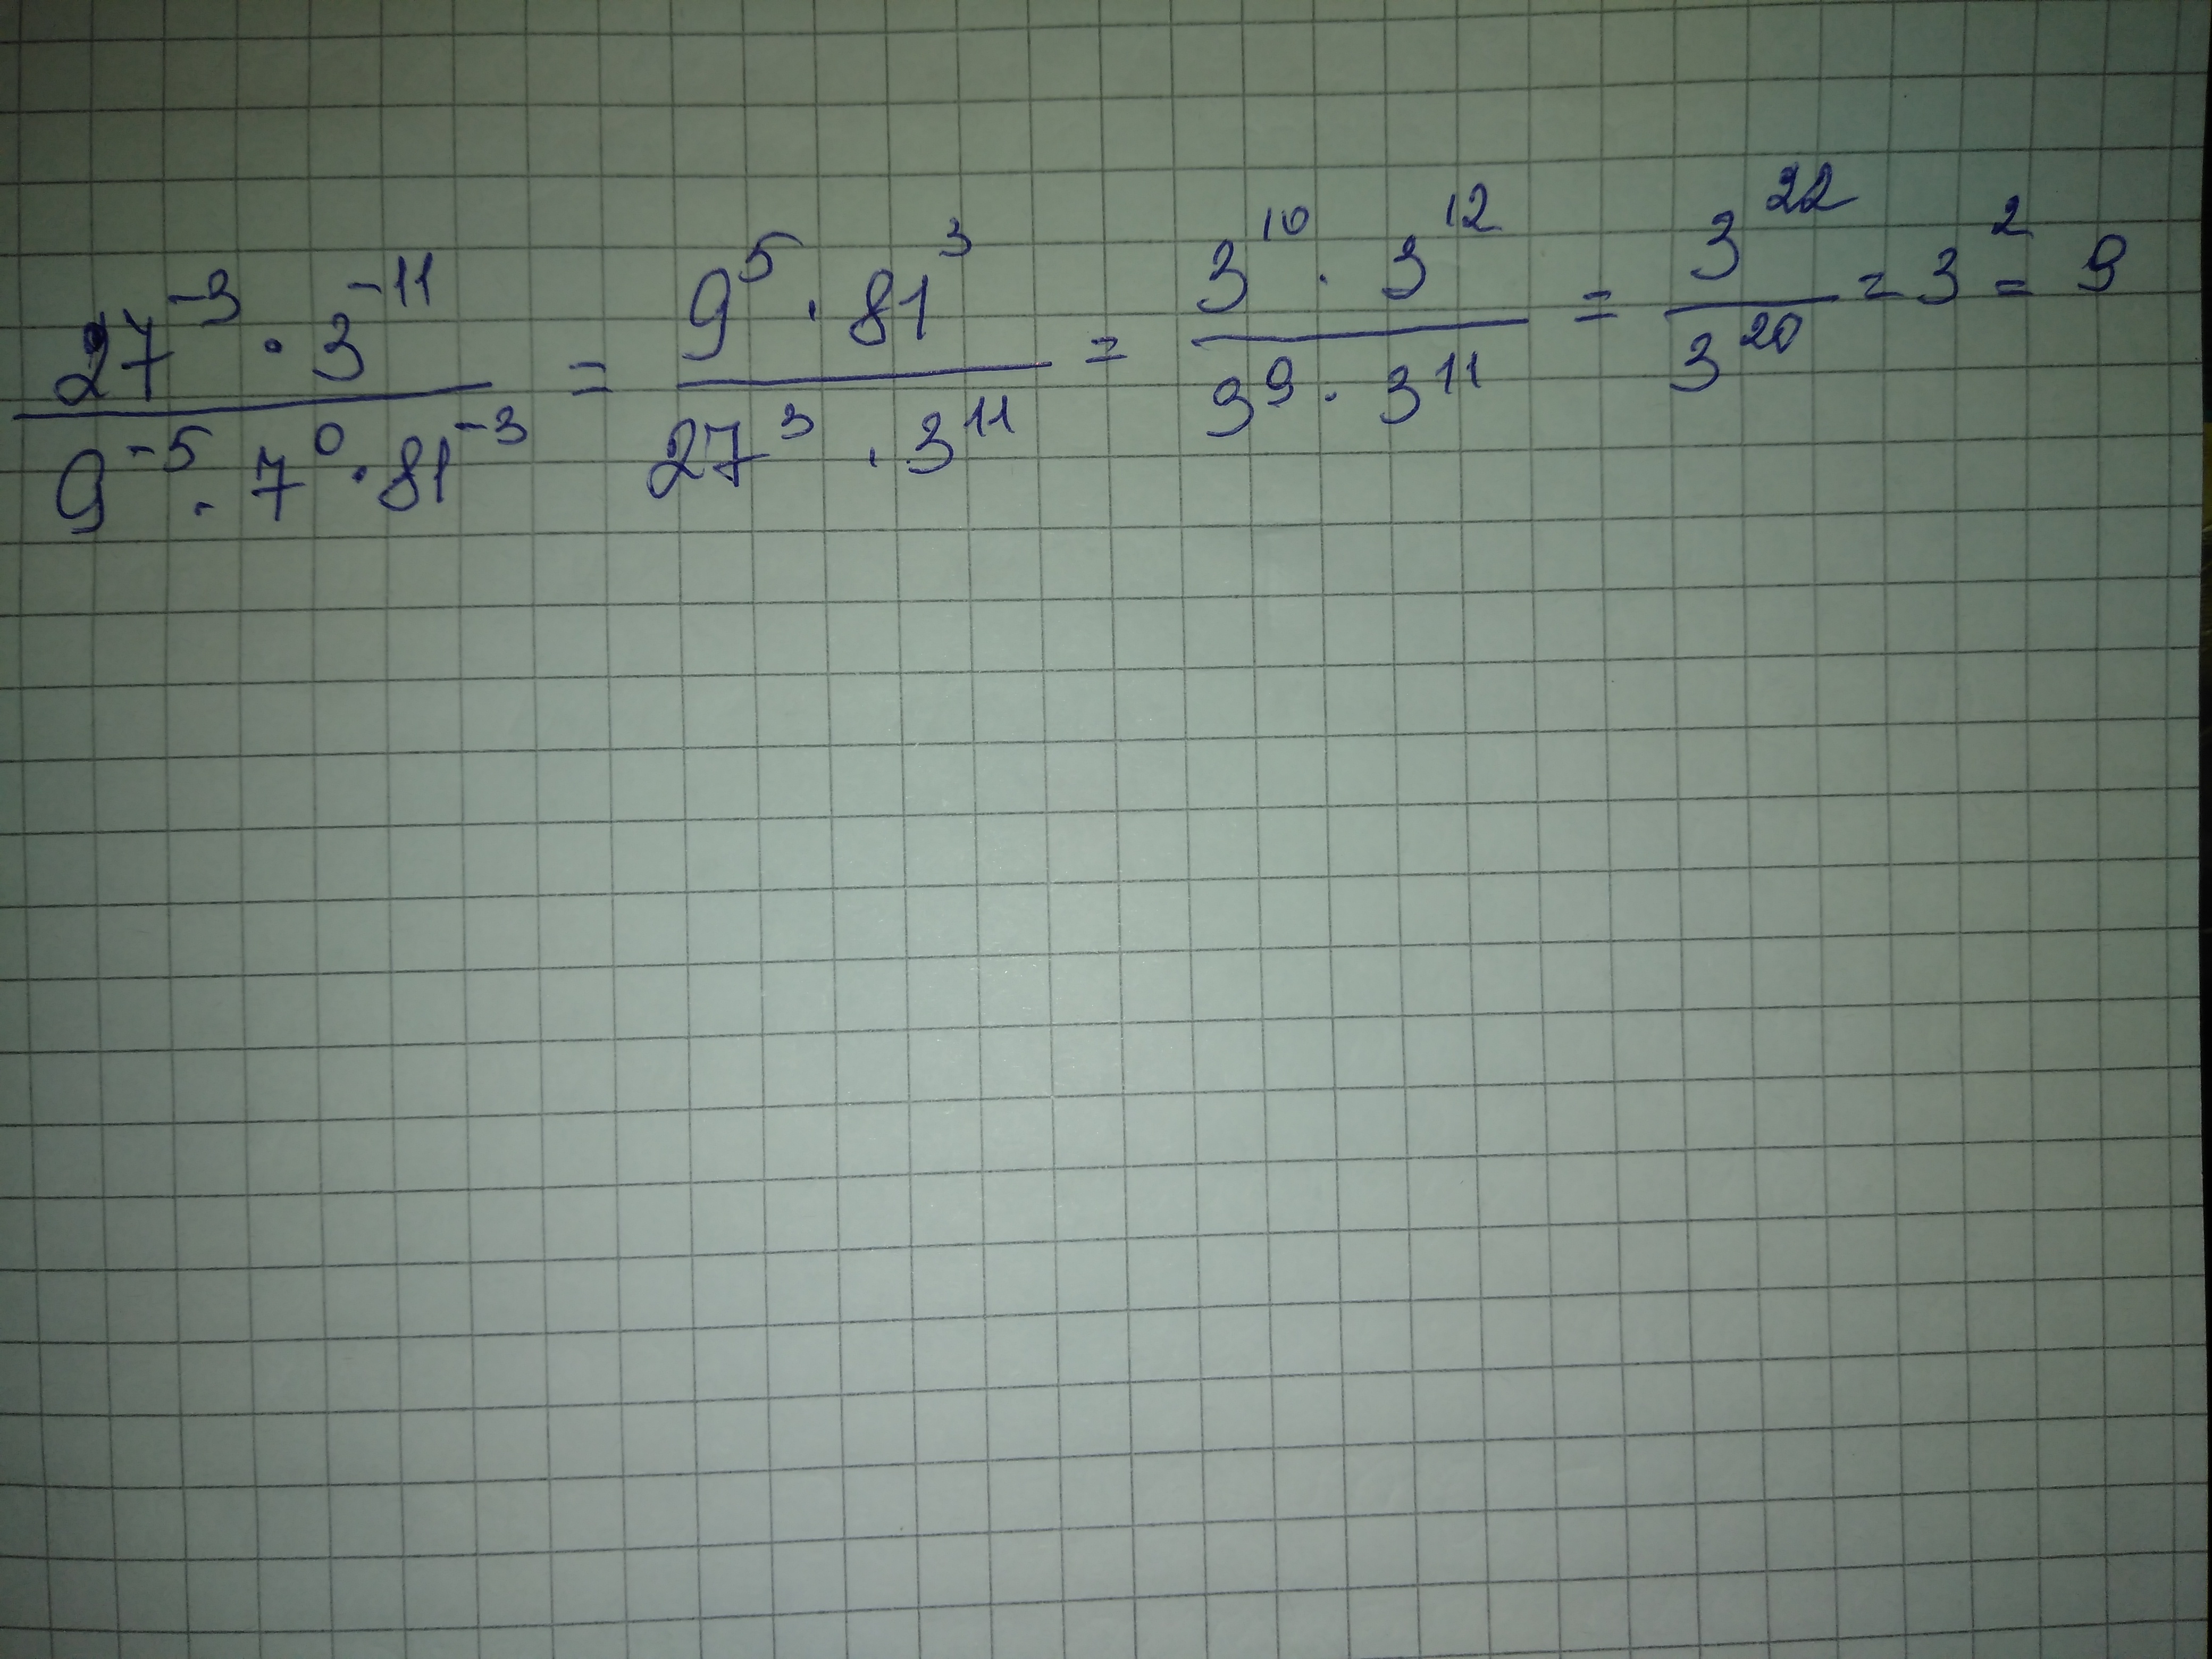 27⁻³ · 3⁻¹¹ / 9⁻⁵ · 7⁰ · 81⁻³ = 9⁵ · 81³ / 27³ · 3¹¹ = 3¹⁰ · 3¹² / 3⁹ · 3¹¹ = 3²² / 3²⁰ = 3² = 9